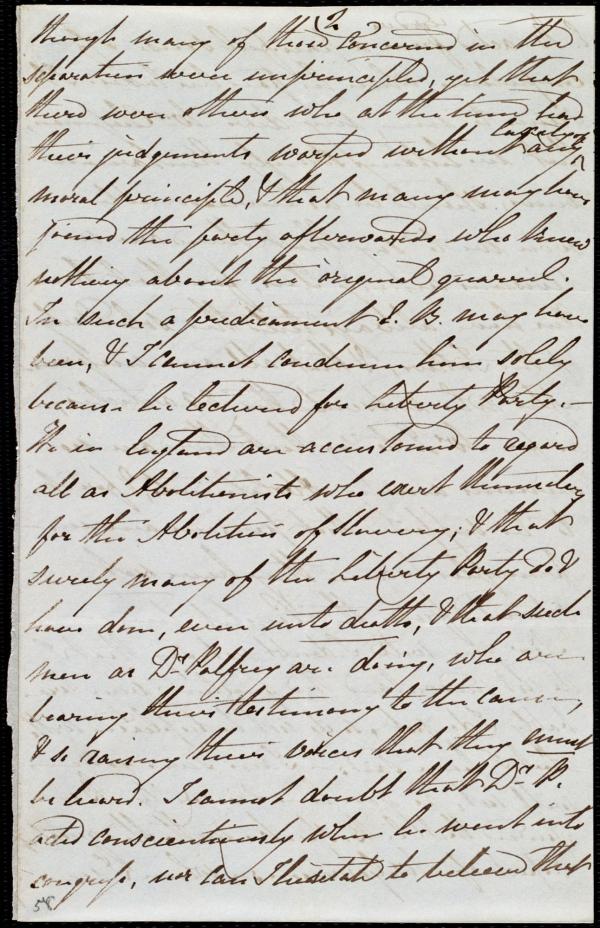 2
though many of those concerned in the
separation were unprincipled, yet that
there were others who at the time had
their judgements warped without
any
moral principle, & that many may have
joined the party afterwards who knew
nothing about the original quarrel.
In such a predicament E. B. may have
been, & I cannot condemn him solely
because he lectured for Liberty Party.—
We in England are accustomed to regard
all as Abolitionists who exert themselves
for the Abolition of Slavery; & that
surely many of the Liberty Party do &
have done, even unto death, & that such
men as Dr. Palfrey are doing, who are
bearing their testimony to the cause,
& so raising their voices that they must
be heard. I cannot doubt that Dr. P.
acted conscientiously when he went into
congress, nor can I hesitate to believe that
58